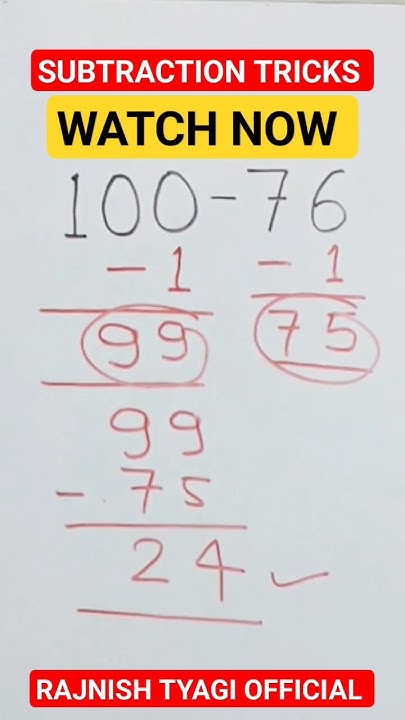 SUBTRACTION TRICKS
WATCH NOW
100-76
-1 -1
99 75
99
-75
24
RAJNISH TYAGI OFFICIAL